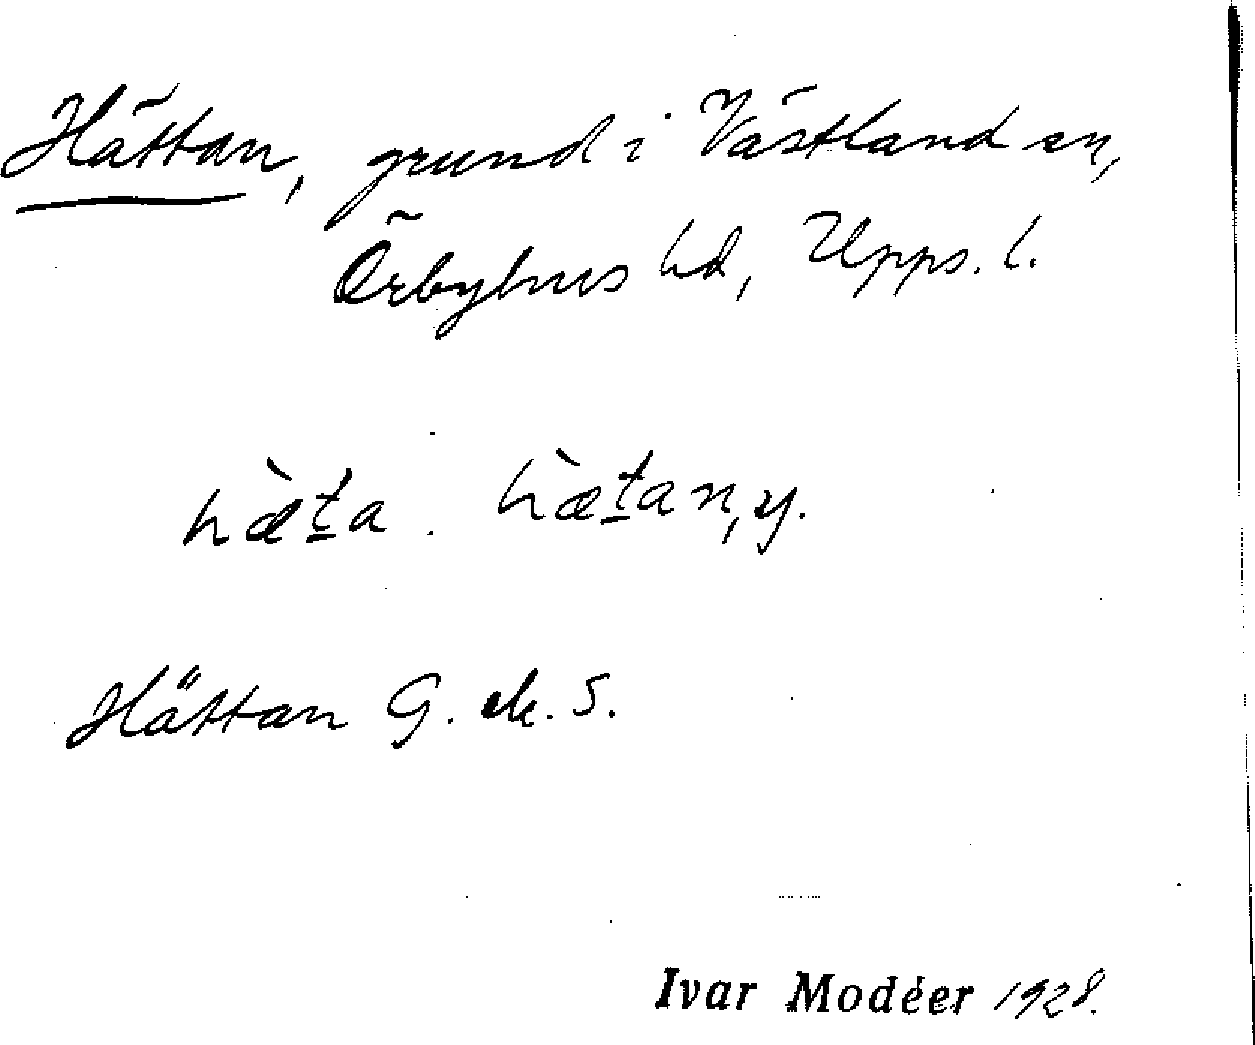 Hättan, grund i Västland sn,
Örbyhus hd, Upps. l.
hæ̀t̠a. hæ̀t̠an, y.
Hättan G. ek. S.
Ivar Modéer 1928.